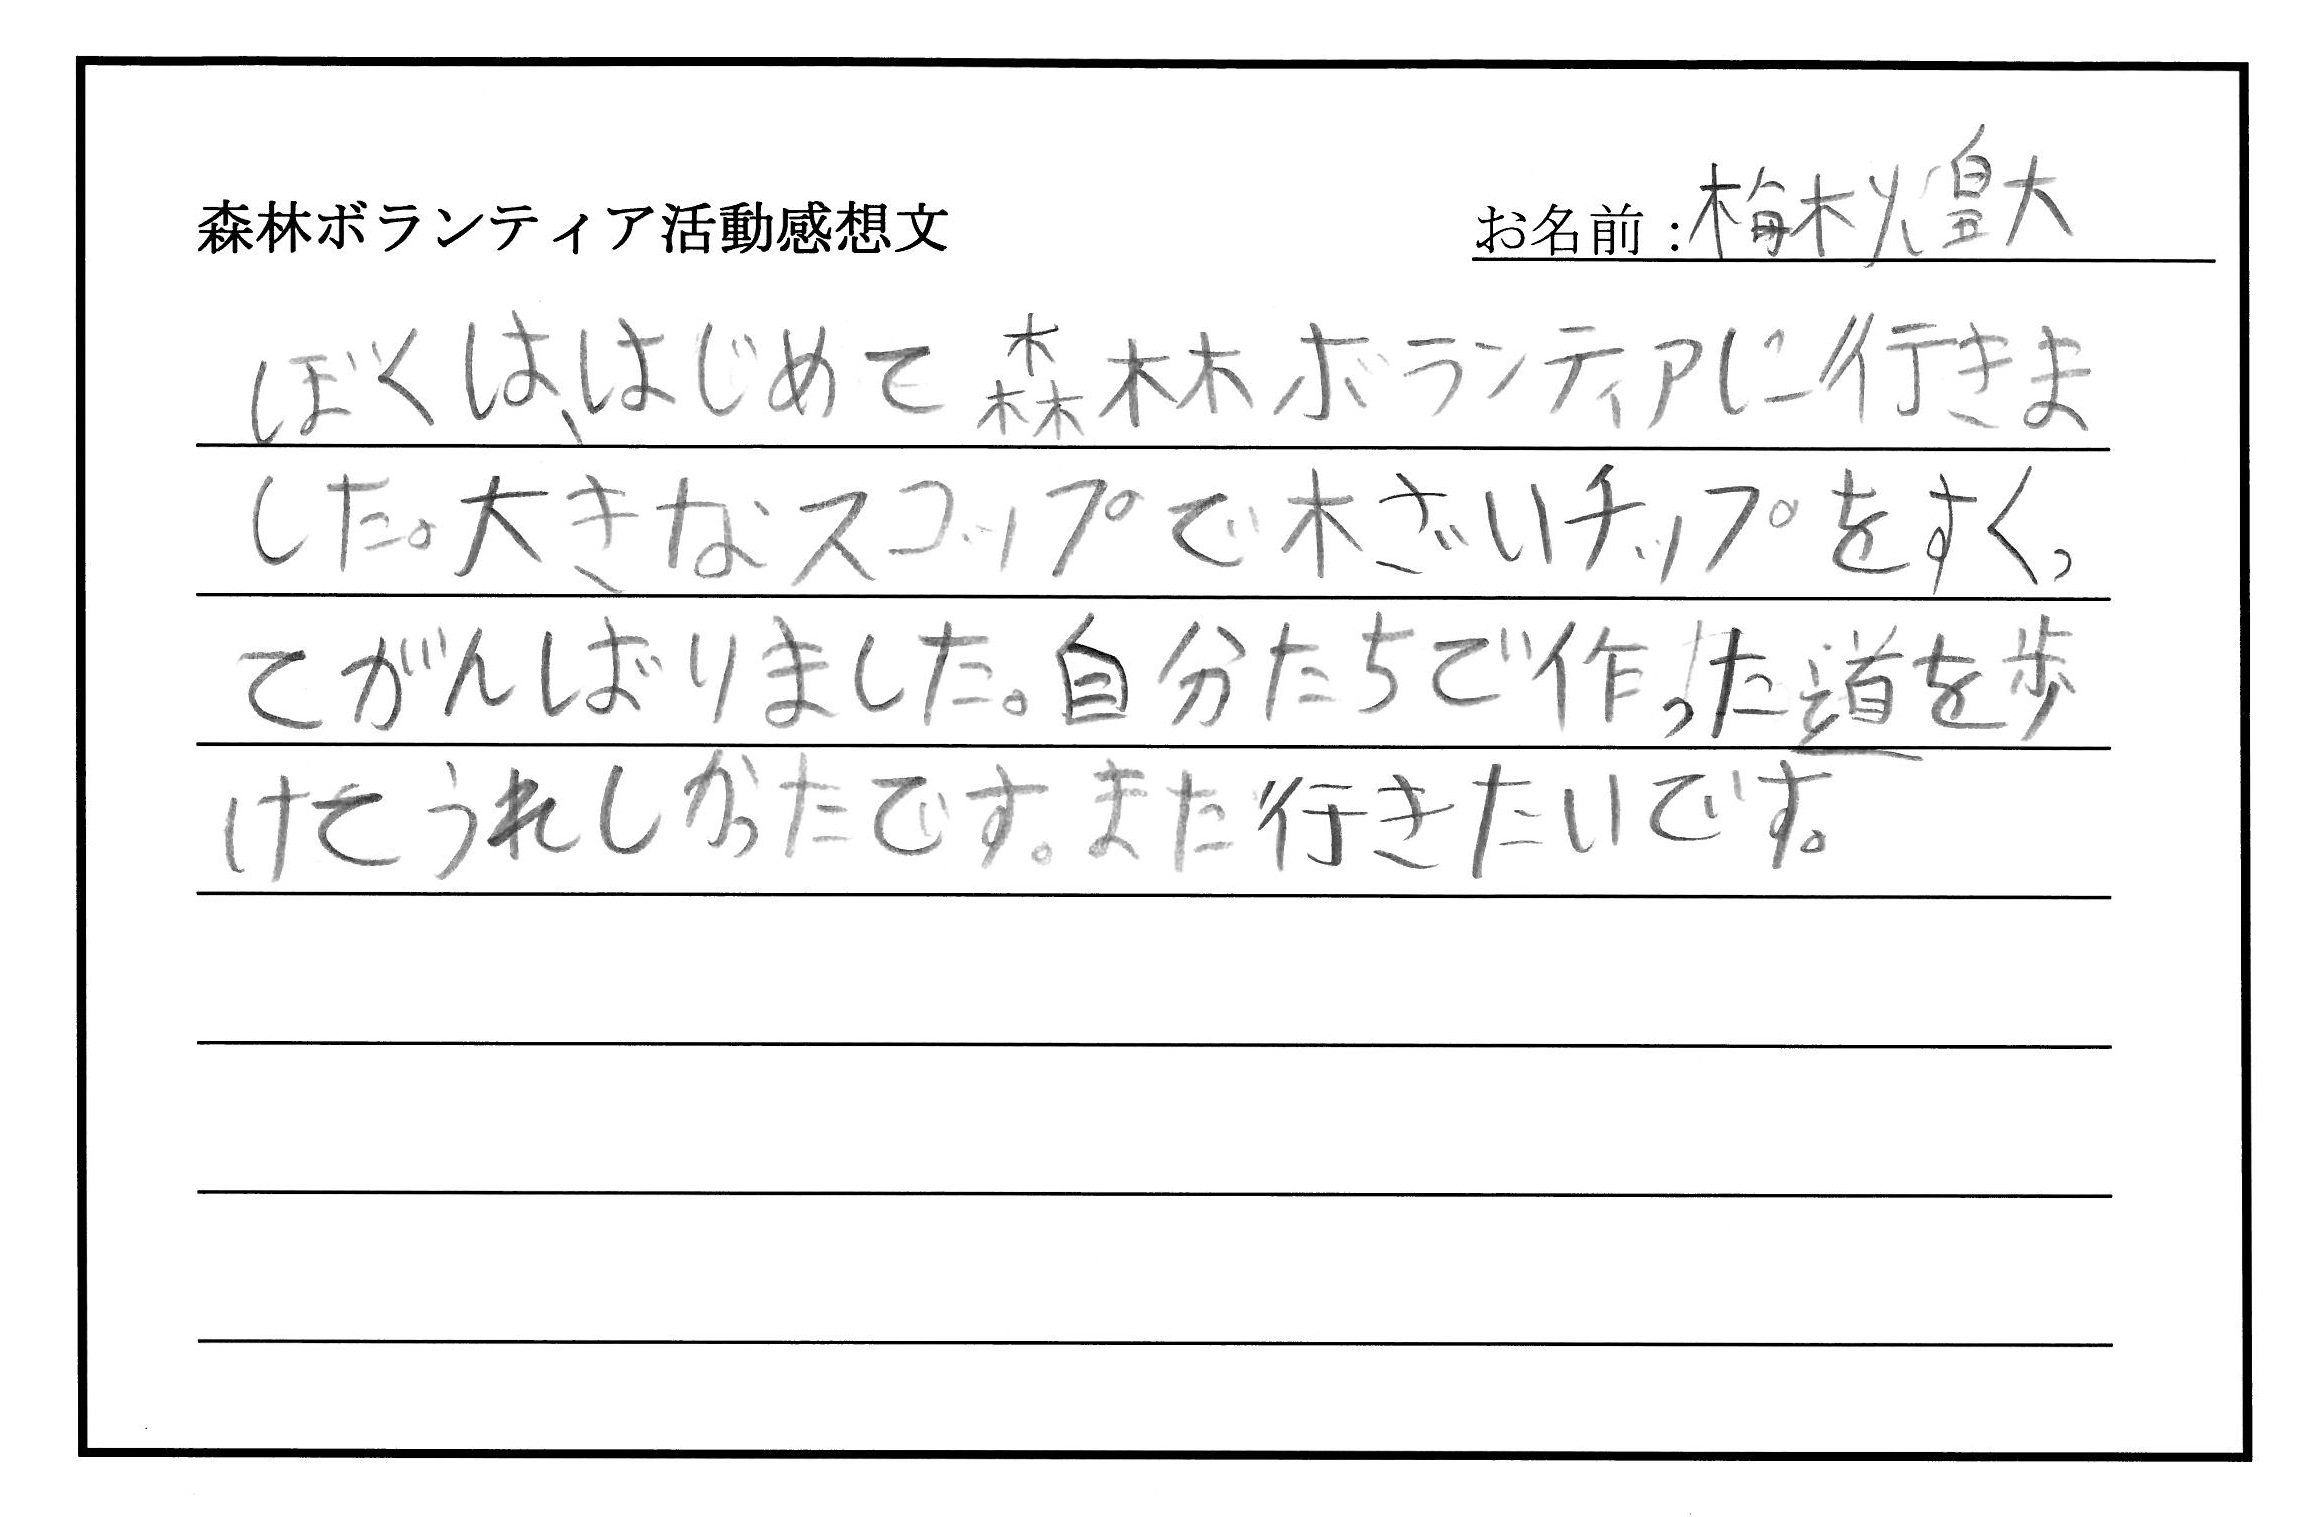 森林ボランティア活動感想文
お名前：梅木煌大
ぼくは、はじめて森林ボランティアに行きま
した。大きなスコップで木ざいチップをすくっ
てがんばりました。自分たちで作った道を歩
けてうれしかったです。また行きたいです。